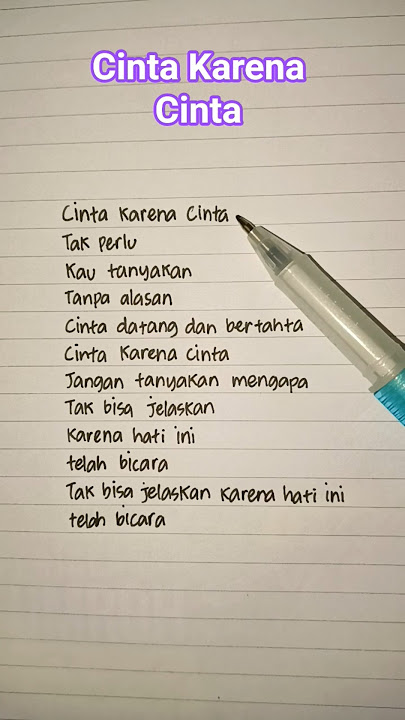 Cinta Karena
Cinta
Cinta Karena Cinta
Tak perlu
Kau tanyakan
Tanpa alasan
Cinta datang dan bertahta
Cinta Karena cinta
Jangan tanyakan mengapa
Tak bisa jelaskan
Karena hati ini
telah bicara
Tak bisa jelaskan Karena hati ini
telah bicara